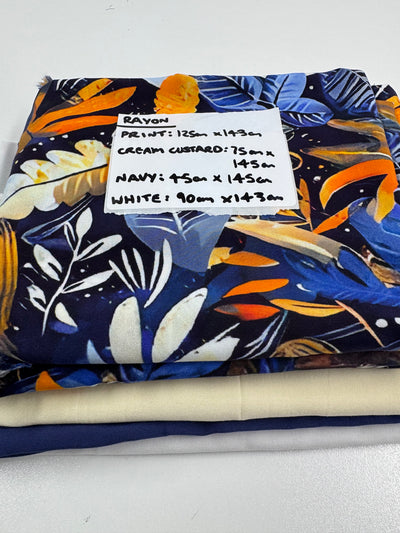 RAYON
PRINT: 125cm x 143cm
CREAM CUSTARD: 75cm x
145cm
NAVY: 45cm x 145cm
WHITE: 90cm x 143cm